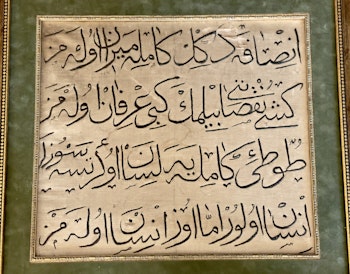 انصافه كه كل كامله ميزان اوله مز
كشى نقصاننى بيلمك كبى عرفان اوله مز
طوطئ كامله يه لسان اوكرتسه سوزى
انسان اولور اما اوز انسان اوله مز